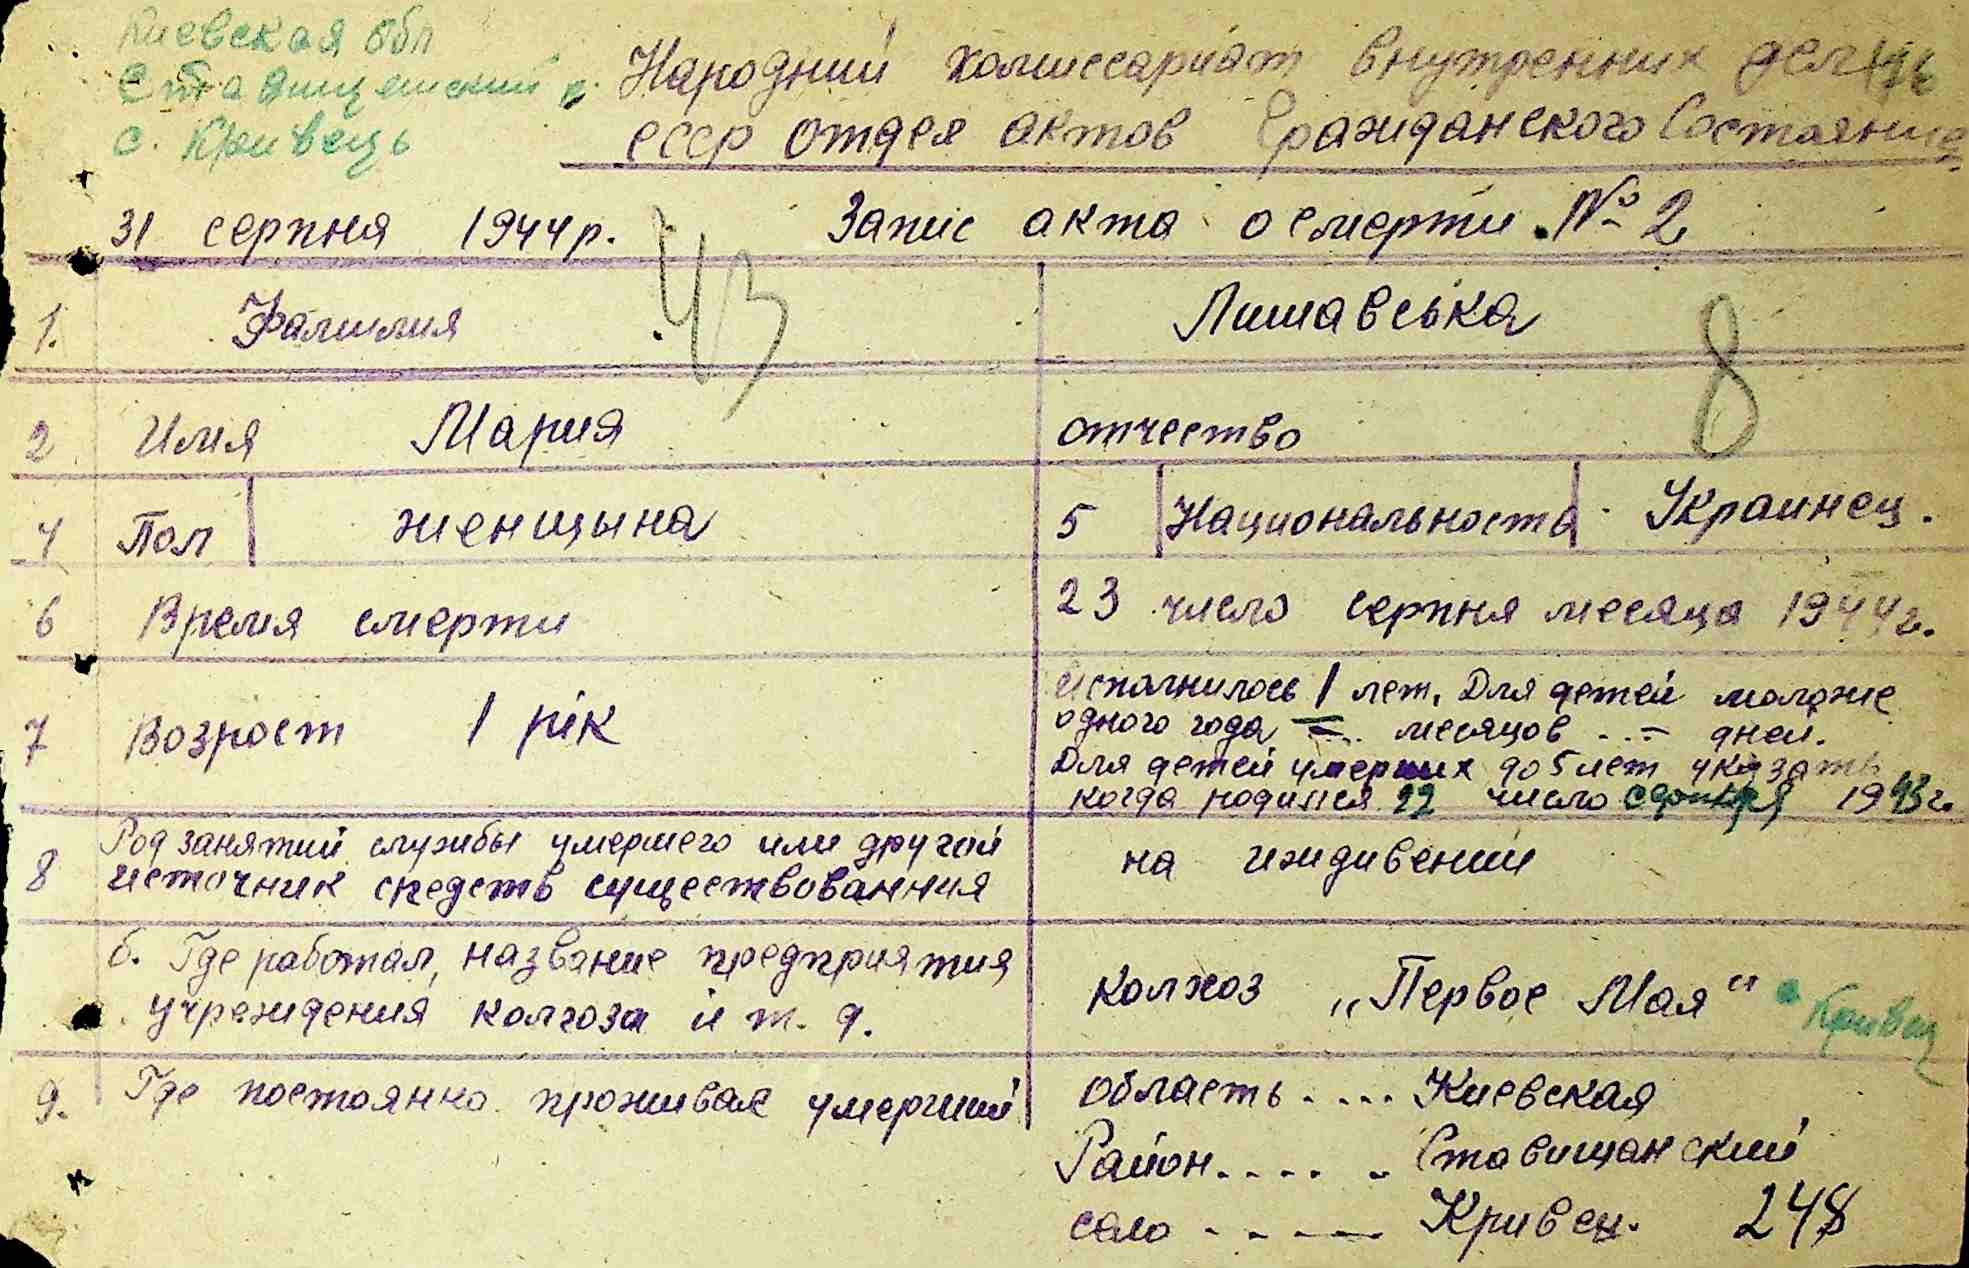 Киевская обл
Ставищенский р.
с. Кривець
Народний комиссариат внутренних дел
ссср отдел актов Гражданского Состояния
31 серпня 1944р. Запис акта о смерти №2
43
1. Фамилия Лишавська
8
2 Имя Мария отчество
4 Пол женщына 5 Националность Украинец.
6 Время смерти 23 число серпня месяца 1944г.
7 Возрост 1 рік
Исполнилось 1 лет. Для детей моложе
одного года = месяцов - дней.
Для детей умерших до 5 лет указать
когда родился 22 число 1943г.
8 Род занятий службы умершего или другой
источник средств существованния
на иждивении
б. Где работал, название предприятия
учреждения колгоза и т. д.
колхоз „Первое Мая" Кривец
9. Где постоянно проживал умерший
область .... Киевская
Район..... Ставищанский
село ----- Кривец. 248